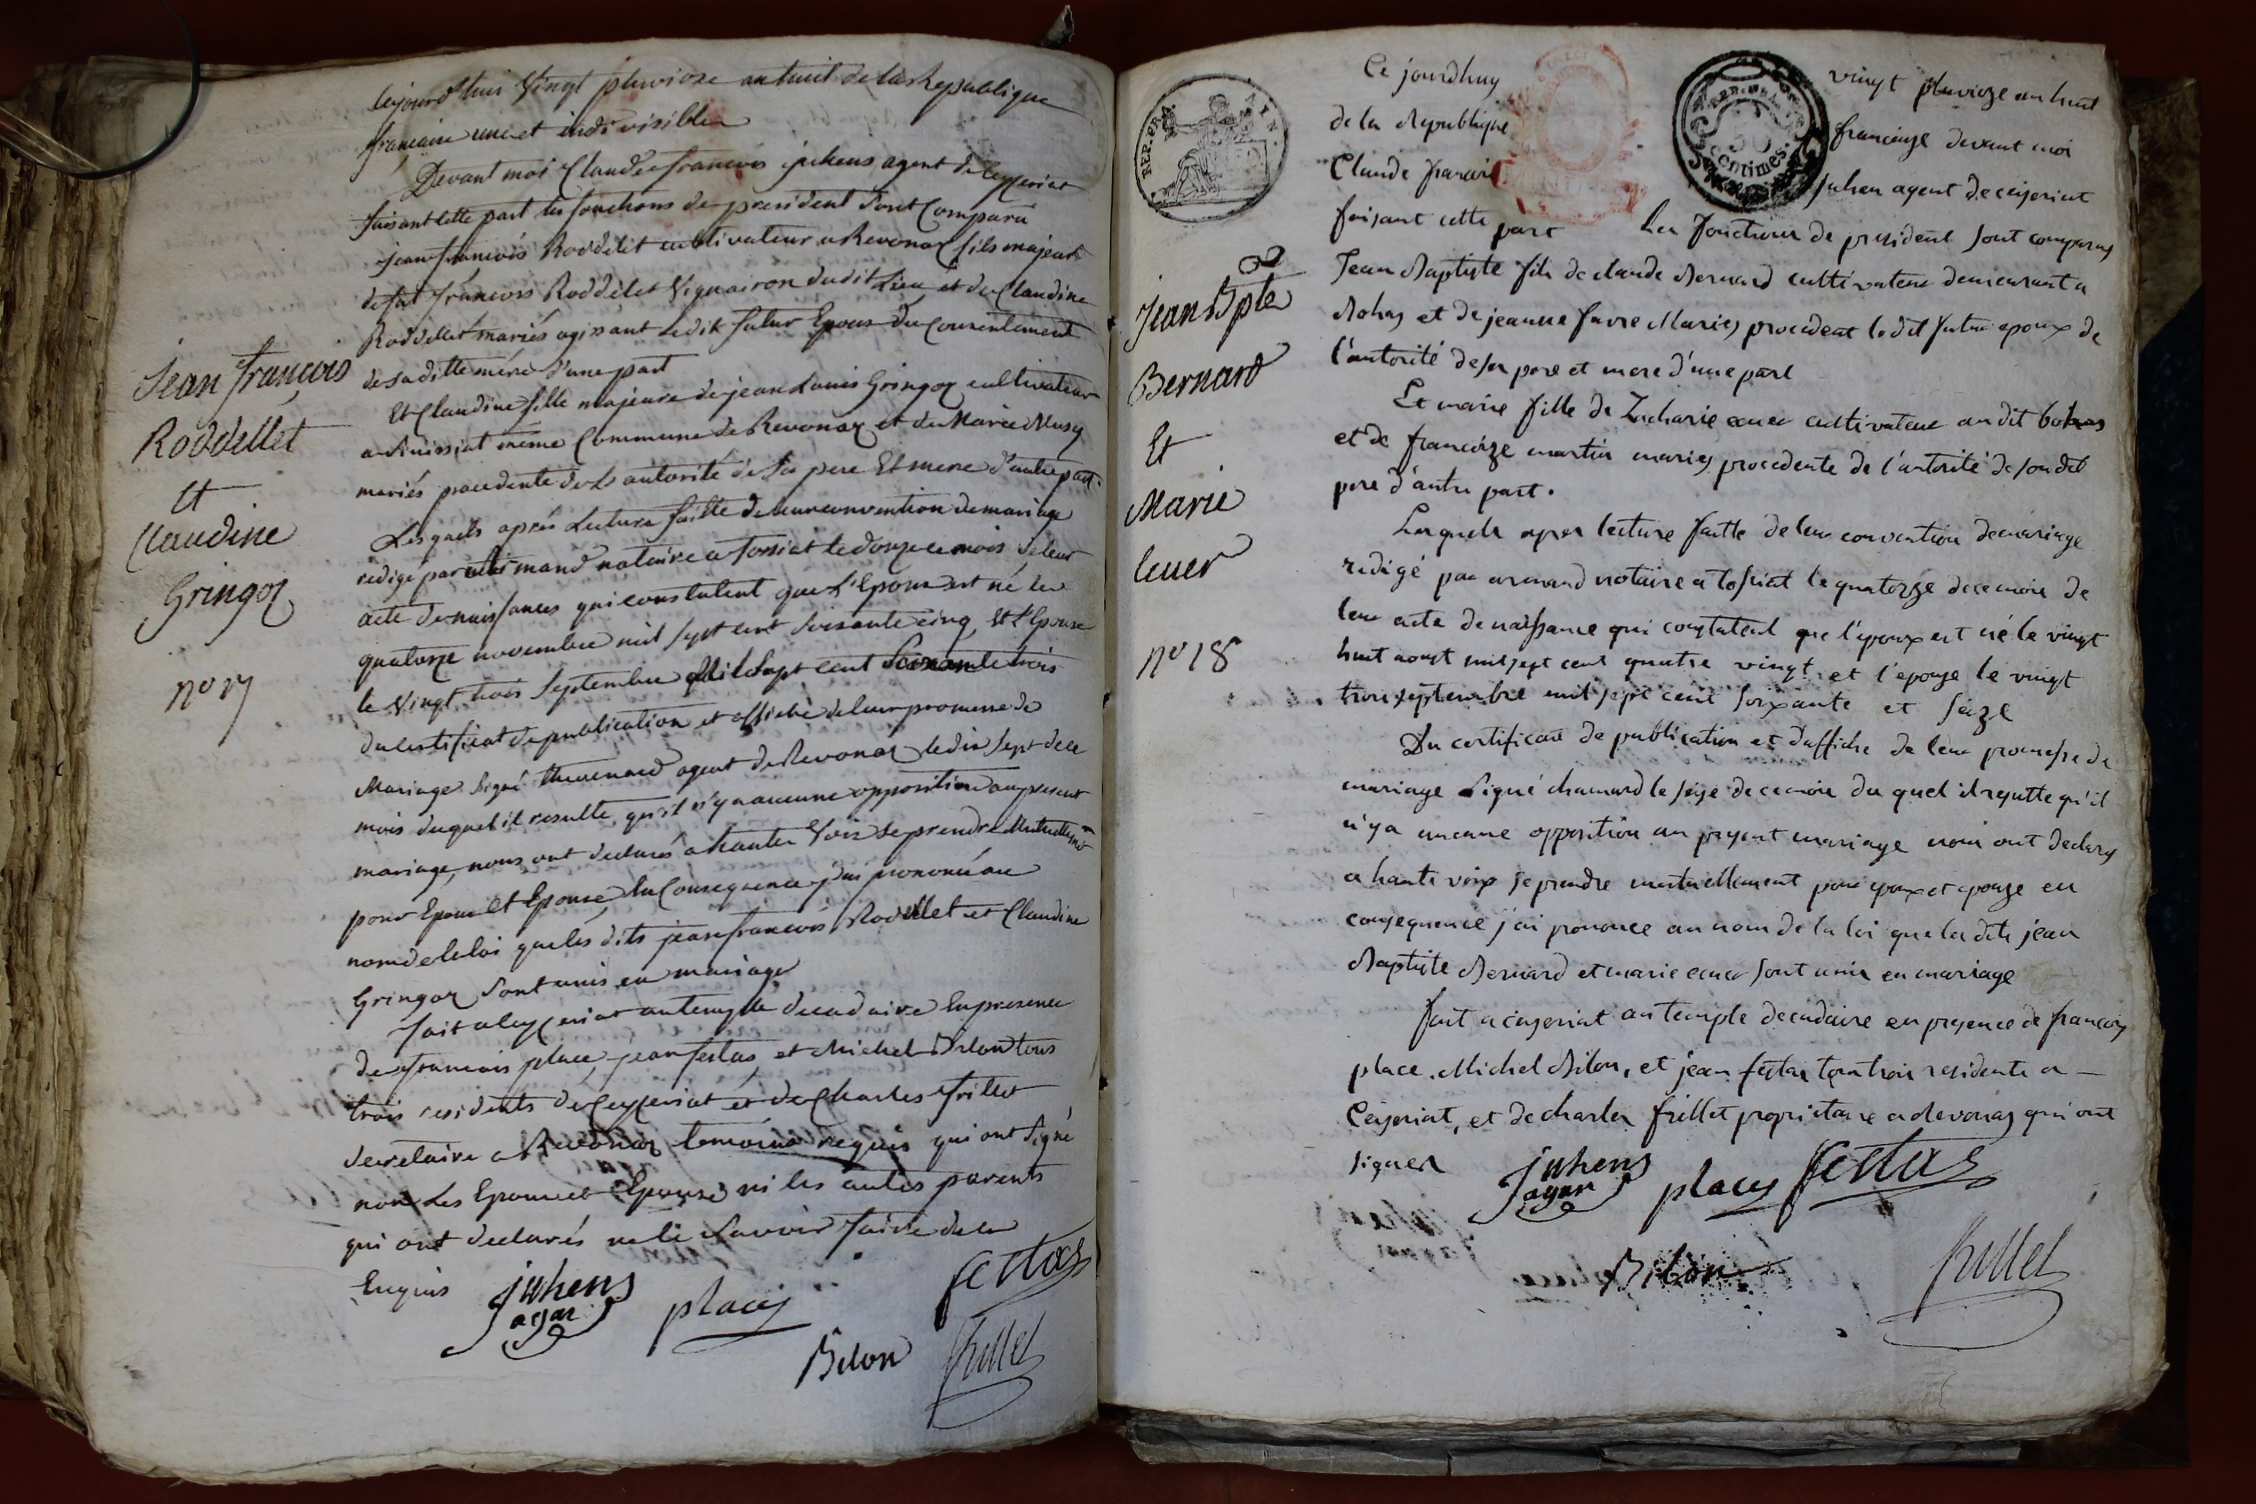 cejourdhui Vingt pluviose an huit de la Republique
francaise une et indivisible
Devant moi Claude francois juhens agent de Ceyzeriat
faisant cette part les fonctions de president sont Comparu
jean francois Roddelet cultivateur a Revonaz fils majeur
de fut francois Roddelet Vigneron dudit Lieu et de Claudine
Roddellet mariés agissant le dit futur Epoux du Consentement
de sa ditte mére d'une part
Et Claudine fille majeure de jean Louis Gringoz cultivateur
a même Commune de Revonaz et de Marie Musy
mariés procedente de L'autorité de ses pere Et mere d'autre part.
Lesquels aprés Lecture faitte de leur convention de mariage
redigé par armand notaire a Tossiat le douze ce mois, de leur
acte de naissances qui constatent que L'Epoux est né le
quatorze novembre mil sept cent soixante cinq, Et L'Epouse
le Vingt trois Septembre Mil Sept cent Soixante trois
du certificat de publication et affiche de leur promesse de
Mariage Signé thevenard agent de Revonaz le dix sept de ce
mois duquel il resulte qu'il n'y a aucune opposition au present
mariage, nous ont declarés a haute Voix se prendre Mutuellemt
pour Epoux et Epouse En Consequence j'ai prononcé au
nom de la loi que les dits jean francois Roddellet et Claudine
Gringoz sont unis en mariage
fait a Ceyzeriat au temple decadaire En presence
de francois place, jean festas, et Michel Bilon tous
trois residents de Ceyzeriat et de Charles frillet
secretaire a Revonaz temoins requis qui ont signé
non Les Epoux et Epouse ni les autres parents
qui ont declarés ne le Savoir faire de ce
Enquis
juhens
agent
place
festas
Bilon
frillet
Jean francois
Roddellet
Et
Claudine
Gringoz
no 17
REP. FRA.
AIN.
REP. FRA.
50
centimes.
Ce jourdhuy vingt pluvioze an huit
de la Republique francaize devant moi
Claude francois juhen agent de ceizeriat
faisant cette part les fonctions de president sont comparus
Jean Baptiste fils de claude Bernard cultivateur demeurant a
Bohas et de jeanne favre Mariés procedent le dit futur epoux de
l'autorité de ses pere et mere d'une part
Et marie fille de Zacharie cuer cultivateur au dit bohas
et de francoize martin mariés procedente de l'autorité de son dit
pere d'autre part.
Lesquels apres lecture faitte de leur convention de mariage
redigé par armand notaire a tossiat le quatorze de ce mois de
leur acte de naissance qui constatent que l'epoux est né le vingt
huit aoust mil sept cent quatre vingt et l'epouze le vingt
trois septembre mil sept cent soixante et seize
Du certificat de publication et d'affiche de leur promesse de
mariage Signé chanard le seize de ce mois du quel il resulte qu'il
n'y a aucune opposition au present mariage nous ont declarés
a haute voix se prendre mutuellement pour epoux et epouze en
consequence j'ai prononcé au nom de la loi que les dits jean
Baptiste Bernard et marie cuer sont unis en mariage
fait a ceizeriat au temple decadaire en presence de francois
place, Michel Bilon, et jean festas tous trois residents a
Ceizeriat, et de charles frillet proprietaire a Revonas qui ont
signer
juhens
agent
place
festas
Bilon
frillet
Jean Bpte
Bernard
Et
Marie
Cuer
no 18